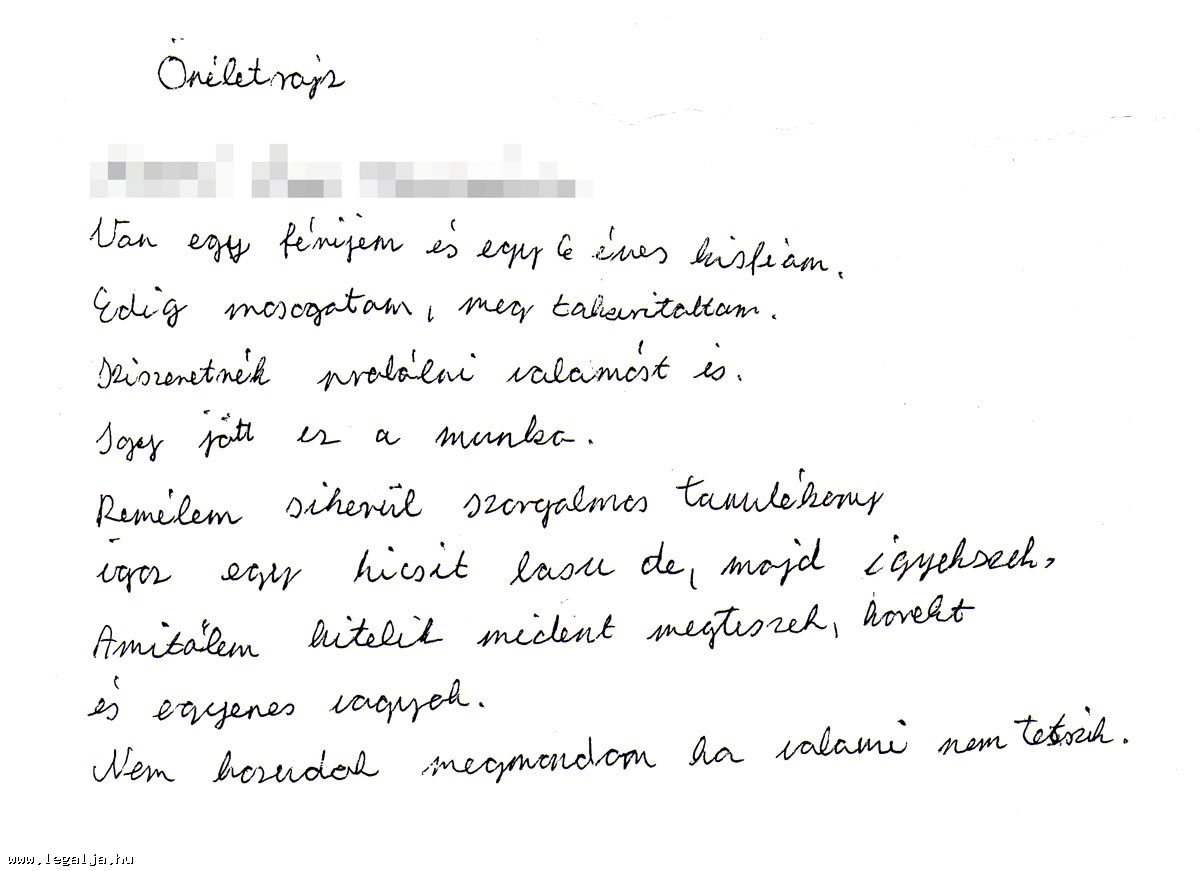 Önéletrajz
Van egy férijem és egy 6 éves kisfiam.
Edig mosogatam, meg takaritattam.
Kiszeretnék probálni valamást is.
Igy jött ez a munka.
Remélem sikerül szorgalmas tanulékony
igaz egy kicsit lasu de, majd igyekszek,
Amitőlem kitelik mident megteszek, korekt
és egyenes vagyok.
Nem hazudok megmondom ha valami nem tetszik.
www.legalja.hu